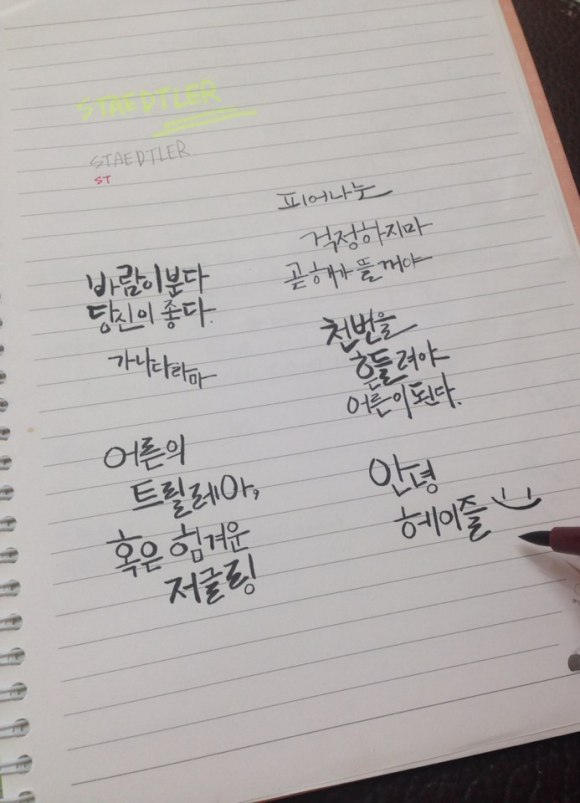 STAEDTLER
STAEDTLER
ST
피어나눈
걱정하지마
곧 해가 뜰꺼야
바람이분다
당신이 좋다.
가나다라마
천번을
흔들려야
어른이 된다.
어른의
트릴레마,
혹은 힘겨운
저글링
안녕
헤이즐